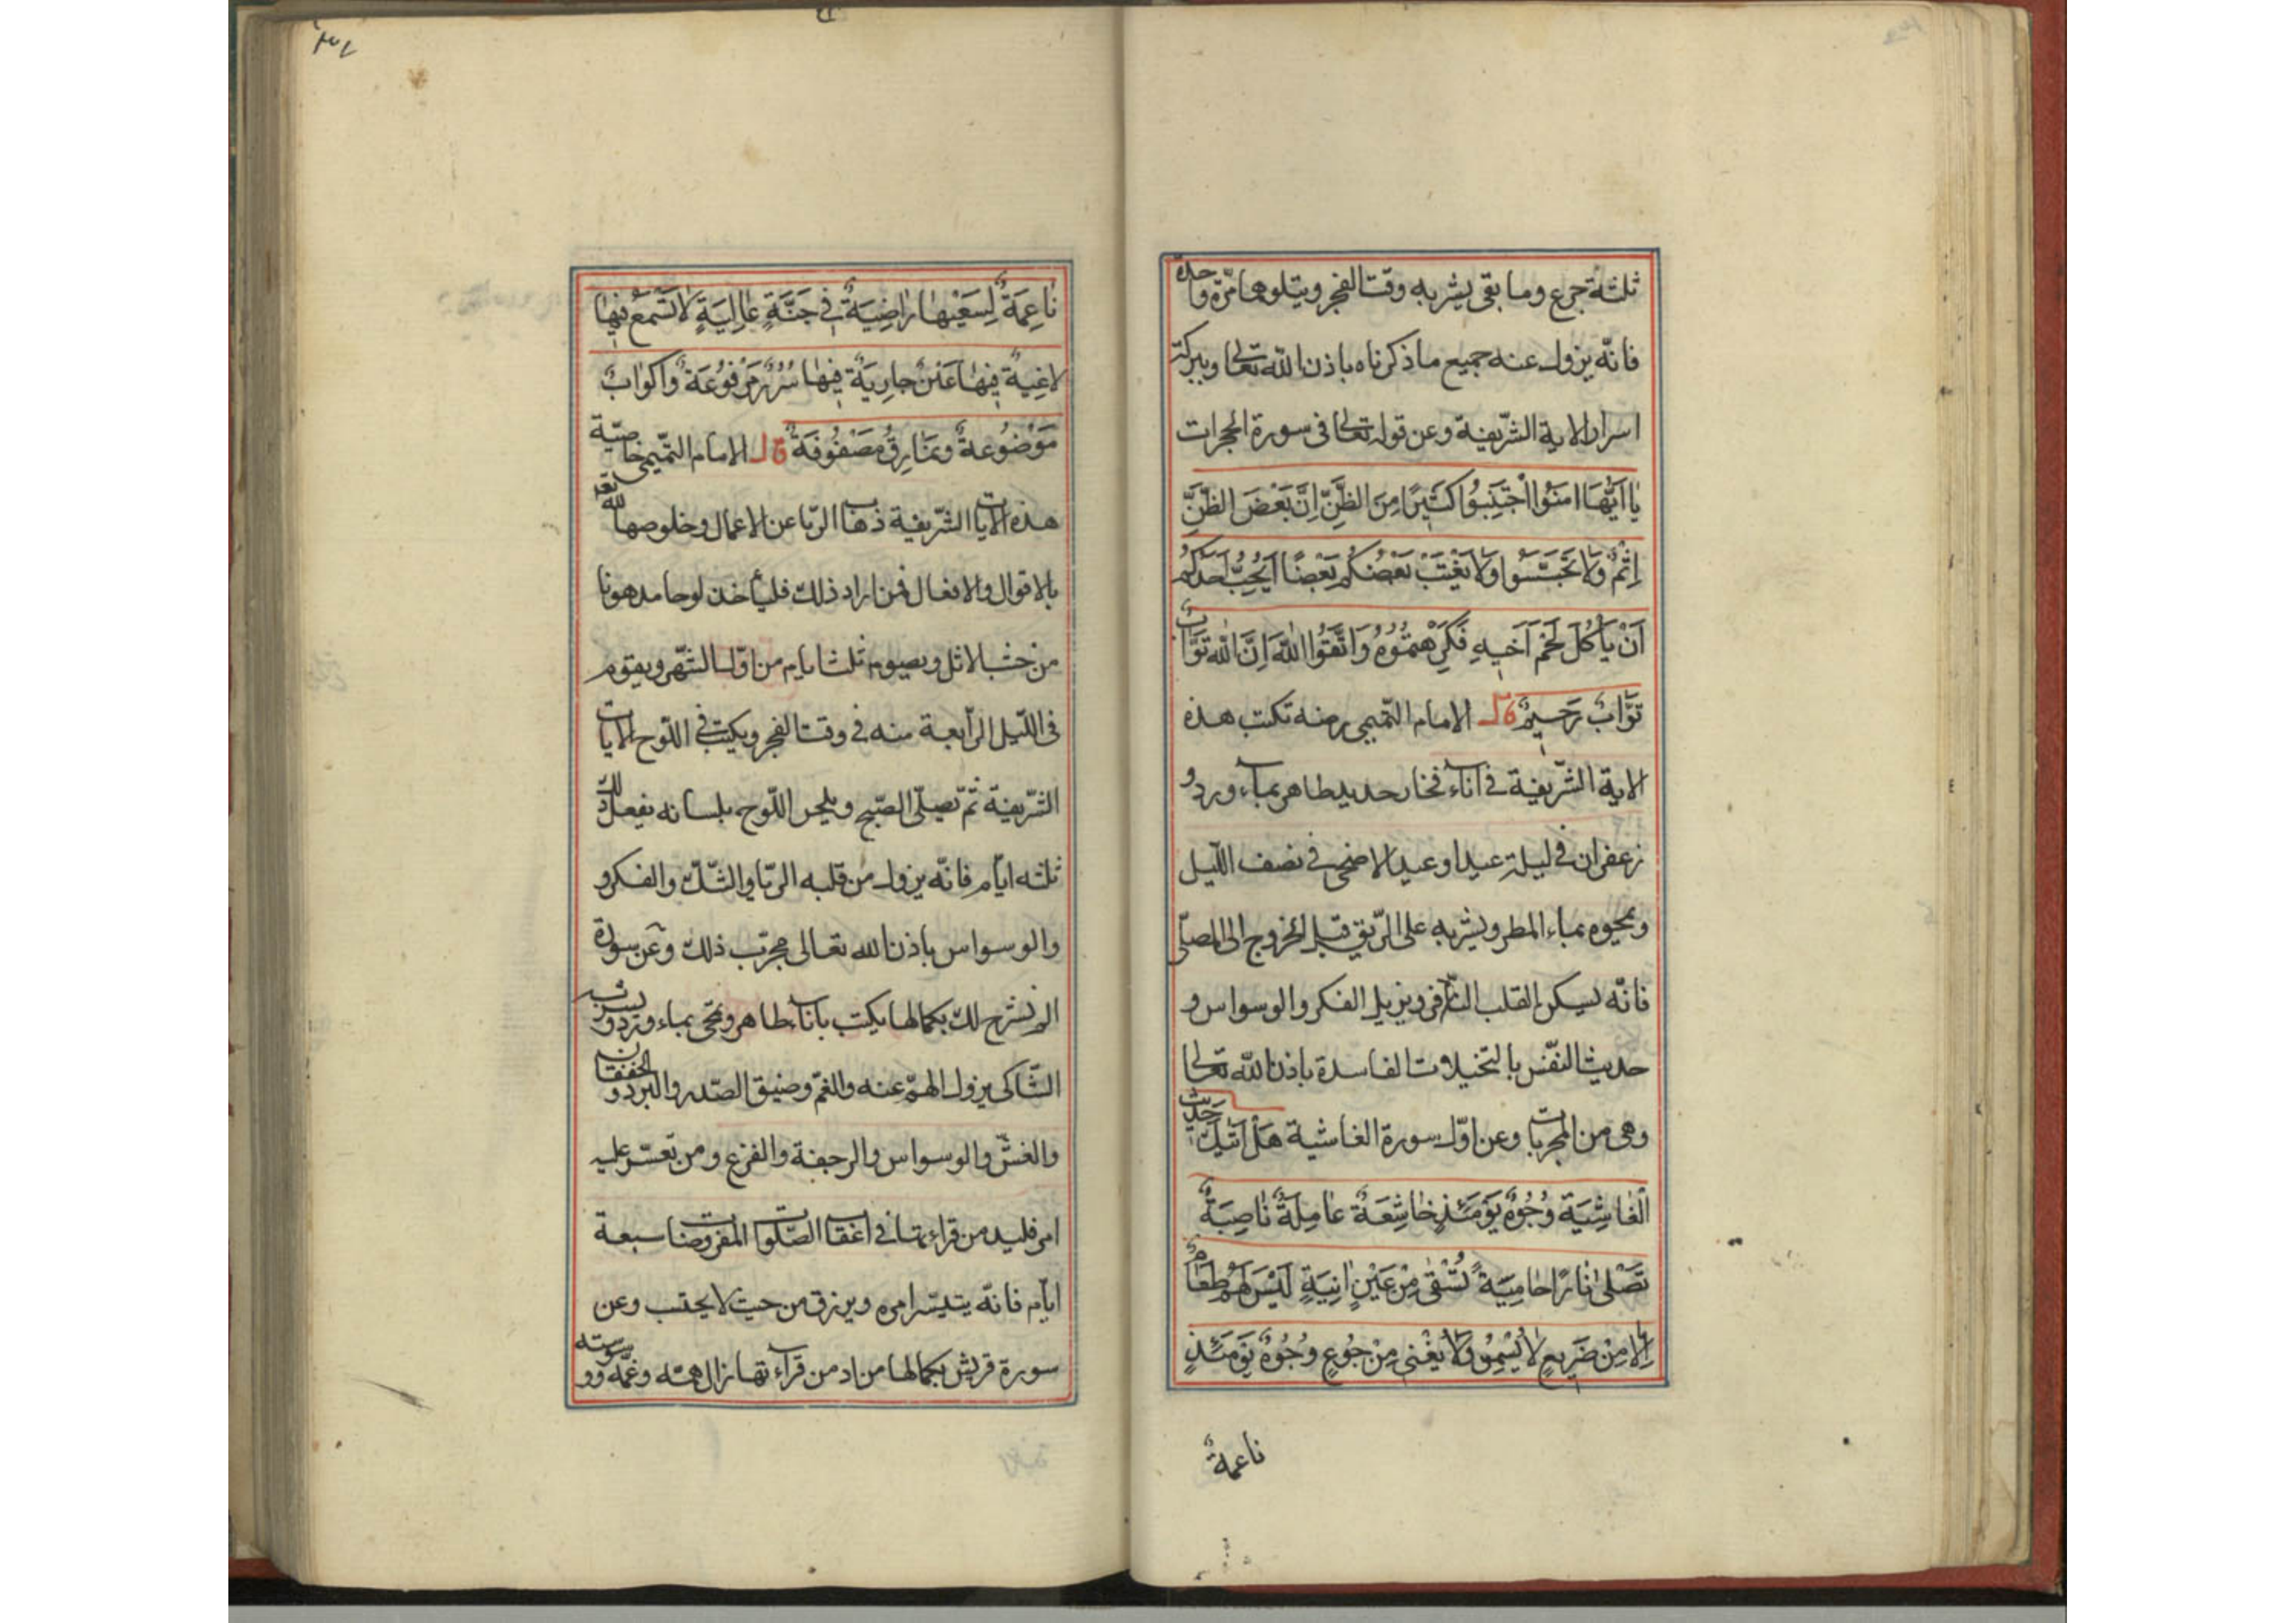 ثلثة جرع وما بقى يشربه وقت الفجر ويتلوها مرّة واحدة
فانّه يزول عنه جميع ما ذكرناه باذن الله تعالى وببركة
اسرار الاية الشّريفة وعن قوله تعالى فى سورة الحجرات
يا اَيُّهَا امَنُوا اجْتَنِبُوا كَثِيرًا مِنَ الظَّنِّ اِنَّ بَعْضَ الظَّنِّ
اِثْمٌ وَلَا تَجَسَّسُوا وَلَا يَغْتَبْ بَعْضُكُمْ بَعْضًا اَيُحِبُّ اَحَدُكُمْ
اَنْ يَأْكُلَ لَحْمَ اَخِيهِ فَكَرِهْتُمُوهُ وَاتَّقُوا اللّٰهَ اِنَّ اللّٰه تَوَّابٌ
تَوَّابٌ رَحِيمٌ قال الامام التّميمى رضه تكتب هذه
الاية الشّريفة فى اناء فخار جديد طاهر بماء ورد و
زعفران فى ليلة عيد او عيد الاضحى فى نصف اللّيل
ويمحيوه بماء المطر ويشربه على الرّيق قبل الخروج الى المصلّى
فانّه يسكن القلب النّافر ويزيل الفكر والوسواس و
حديث النّفس بالتخيلات الفاسدة باذن الله تعالى
وهى من المجربات وعن اوّل سورة الغاشية هَلْ اَتٰيكَ حَدِيثُ
الْغَاشِيَة وُجُوهٌ يَوْمَئِذٍ خَاشِعَةٌ عَامِلَةٌ نَاصِبَةٌ
تَصْلٰى نَارًا حَامِيَةً تُسْقٰى مِنْ عَيْنٍ اٰنِيَةٍ لَيْسَ لَهُمْ طَعَامٌ
اِلَّا مِنْ ضَرِيعٍ لَا يُسْمِنُ وَلَا يُغْنِى مِنْ جُوعٍ وُجُوهٌ يَوْمَئِذٍ
ناعمةٌ
نَاعِمَةٌ لِسَعْيِهَا رَاضِيَةٌ فِى جَنَّةٍ عَالِيَةٍ لَا تَسْمَعُ فِيهَا
لَاغِيَةً فِيهَا عَيْنٌ جَارِيَةٌ فِيهَا سُرُرٌ مَرْفُوعَةٌ وَاَكْوَابٌ
مَوْضُوعَةٌ وَنَمَارِقُ مَصْفُوفَةٌ قال الامام التّميمى خاصّية
هذه الايات الشّريفة ذهاب الريّا عن الاعمال وخلوصها لله تعه
بالاقوال والافعال فمن اراد ذلك فليأخذ لوحا مدهونا
من خشب الاثل ويصيوم ثلث ايام من اوّل الشّهر ويقوم
فى اللّيل الرّابعة منه فى وقت الفجر ويكتب فى اللّوح الايات
الشّريفة ثمّ تصيلّى الصّبح ويلحس اللّوح بلسانه يفعل ذلك
ثلثه ايّام فانّه يزول من قلبه الريّا والشّكّ والفكر و
والوسواس باذن الله تعالى مجرّب ذلك وعن سورة
الم نشرح لك بكمالها يكتب باناء طاهر وتمحى بماء ورد و يشرب
الشّاكى يزول الهمّ عنه والغمّ وضيق الصّدر والبرد و الخفقان
والغشّ والوسواس والرجفة والفزع ومن تعسّر عليه
امر فليد من قراءتها فى اعقاب الصّلوات المفروضات سبعة
ايّام فانّه يتيسّر امره ويرزق من حيث لا يحتسب وعن
سورة قريش بكمالها من اد من قراءتها زال همّه وغمّه و وسوسته